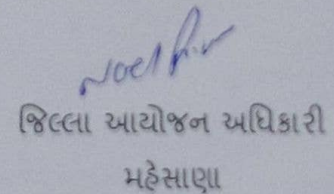 જિલ્લા આયોજન અધિકારી
મહેસાણા